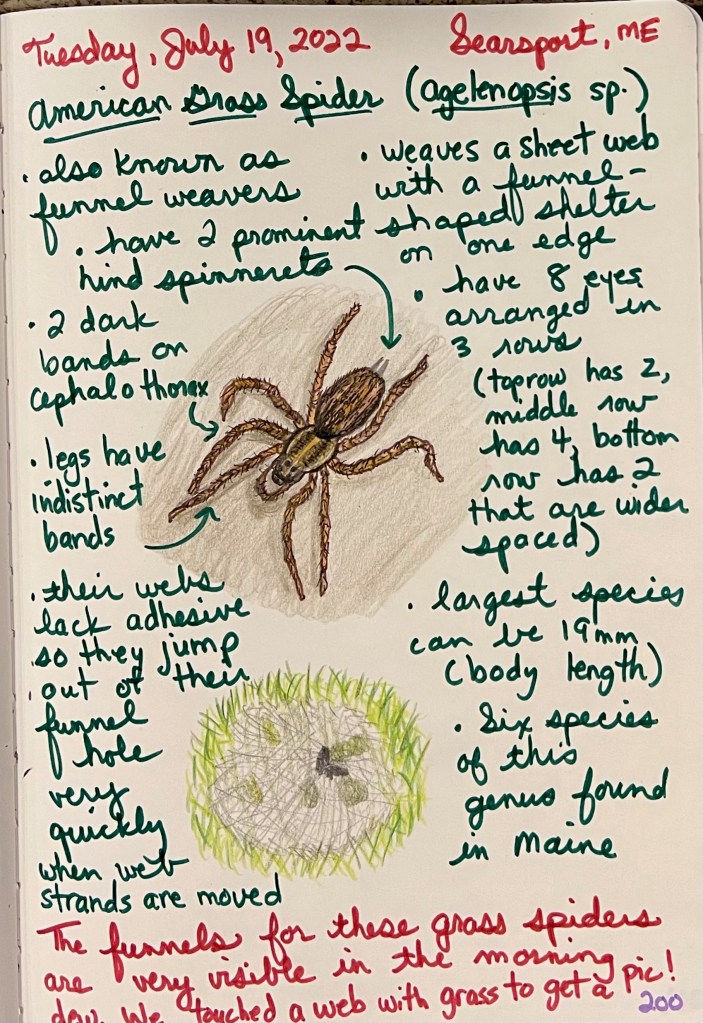 Tuesday, July 19, 2022 Searsport, ME
American Grass Spider (Agelenopsis sp.)
• also known as
funnel weavers
• weaves a sheet web
with a funnel-
shaped shelter
on one edge
• have 2 prominent
hind spinnerets
• 2 dark
bands on
cephalothorax
• have 8 eyes
arranged in
3 rows
(top row has 2,
middle row
has 4, bottom
row has 2
that are wider
spaced)
• legs have
indistinct
bands
• their webs
lack adhesive
so they jump
out of their
funnel
hole
very
quickly
when web
strands are moved
• largest species
can be 19mm
(body length)
• Six species
of this
genus found
in Maine
The funnels for these grass spiders
are very visible in the morning
dew. We touched a web with grass to get a pic!
200